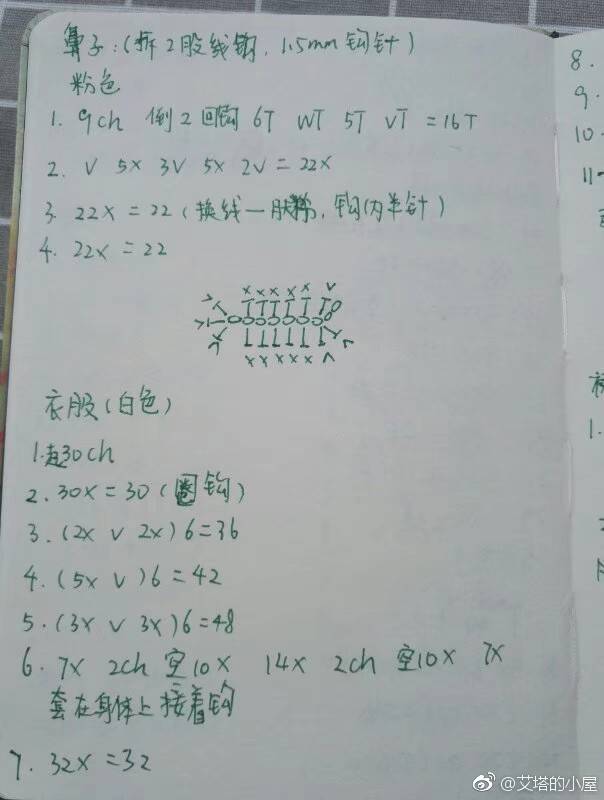 鼻子：(拆2股线钩，1.5mm钩针)
粉色
1. 9ch 倒2回钩 6T WT 5T VT =16T
2. V 5X 3V 5X 2V = 22X
3. 22X = 22 (换线一股，钩内半针)
4. 22X = 22
衣服(白色)
1.起30ch
2. 30X = 30 (圈钩)
3. (2X V 2X)6=36
4. (5X V)6 = 42
5. (3X V 3X)6=48
6. 7X 2ch 空10X 14X 2ch 空10X 7X
套在身体上接着钩
7. 32X =32
8.
9.
10
11
1.
@艾塔的小屋